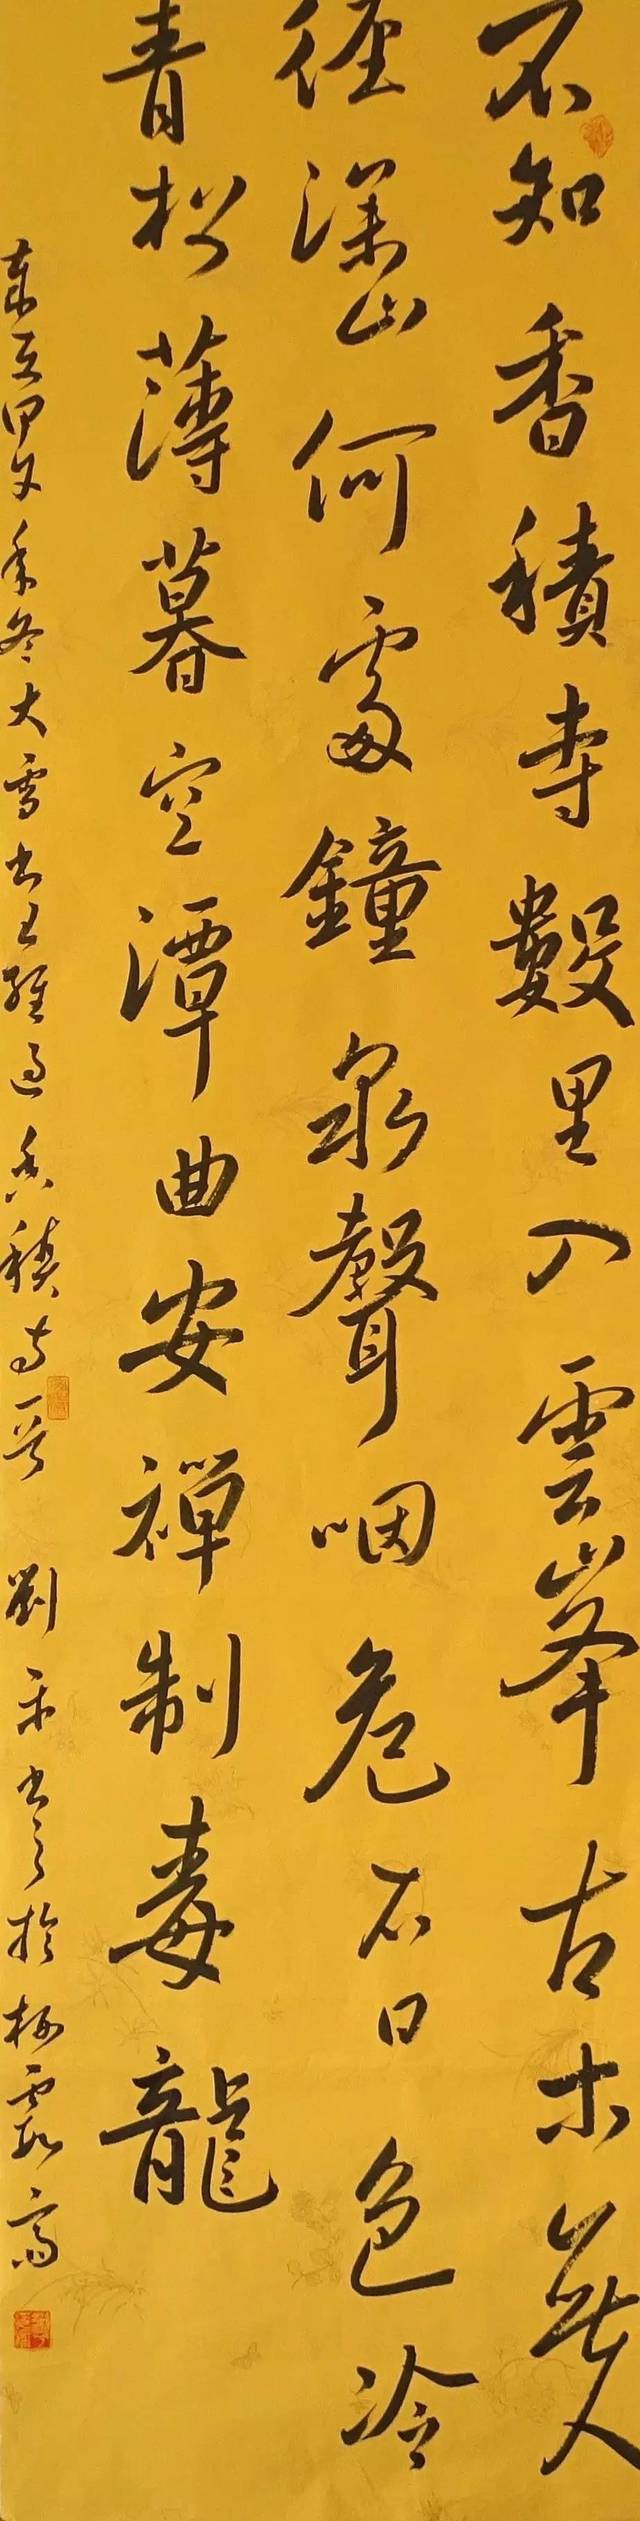 不知香積寺數里入雲峯古木無人
徑深山何處鐘泉聲咽危石日色冷
青松薄暮空潭曲安禪制毒龍
歲至甲辰年冬大雪書王維過香積寺一首 劉 書於栖霞齋